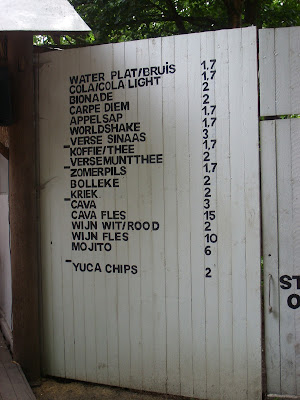 WATER PLAT/BRUIS 1,7
COLA/COLA LIGHT 1,7
BIONADE 2
CARPE DIEM 2
APPELSAP 1,7
WORLDSHAKE 1,7
VERSE SINAAS 3
KOFFIE/THEE 1,7
VERSEMUNTTHEE 2
ZOMERPILS 1,7
BOLLEKE 2
KRIEK 2
CAVA 3
CAVA FLES 15
WIJN WIT/ROOD 2
WIJN FLES 10
MOJITO 6
YUCA CHIPS 2
ST
O